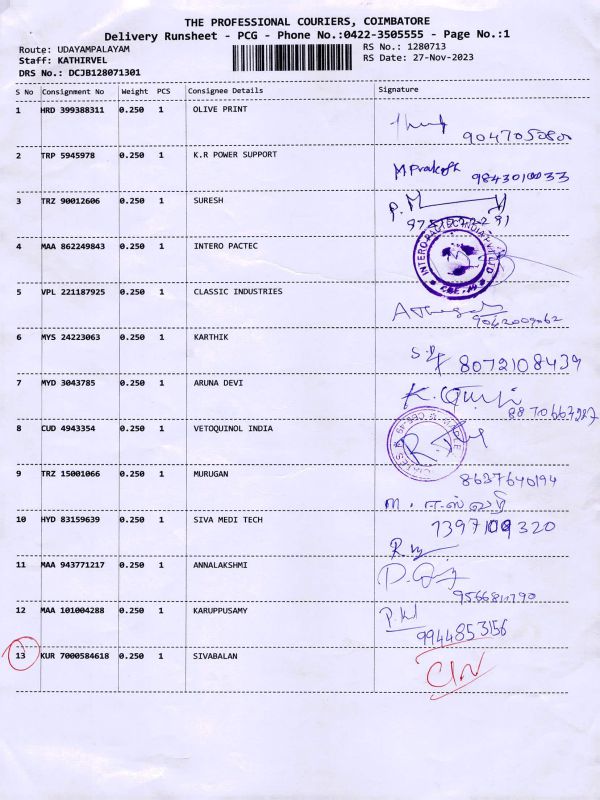 THE PROFESSIONAL COURIERS, COIMBATORE
Delivery Runsheet - PCG - Phone No.:0422-3505555 - Page No.:1
Route: UDAYAMPALAYAM RS No.: 1280713
Staff: KATHIRVEL RS Date: 27-Nov-2023
DRS No.: DCJB128071301
S No Consignment No Weight PCS Consignee Details Signature
1 HRD 399388311 0.250 1 OLIVE PRINT
2 TRP 5945978 0.250 1 K.R POWER SUPPORT
M Prakash 9843010033
3 TRZ 90012606 0.250 1 SURESH
4 MAA 862249843 0.250 1 INTERO PACTEC
5 VPL 221187925 0.250 1 CLASSIC INDUSTRIES
6 MYS 24223063 0.250 1 KARTHIK
8072108439
7 MYD 3043785 0.250 1 ARUNA DEVI
8 CUD 4943354 0.250 1 VETOQUINOL INDIA
9 TRZ 15001066 0.250 1 MURUGAN
8637640194
10 HYD 83159639 0.250 1 SIVA MEDI TECH
11 MAA 943771217 0.250 1 ANNALAKSHMI
12 MAA 101004288 0.250 1 KARUPPUSAMY
9944853156
13 KUR 7000584618 0.250 1 SIVABALAN